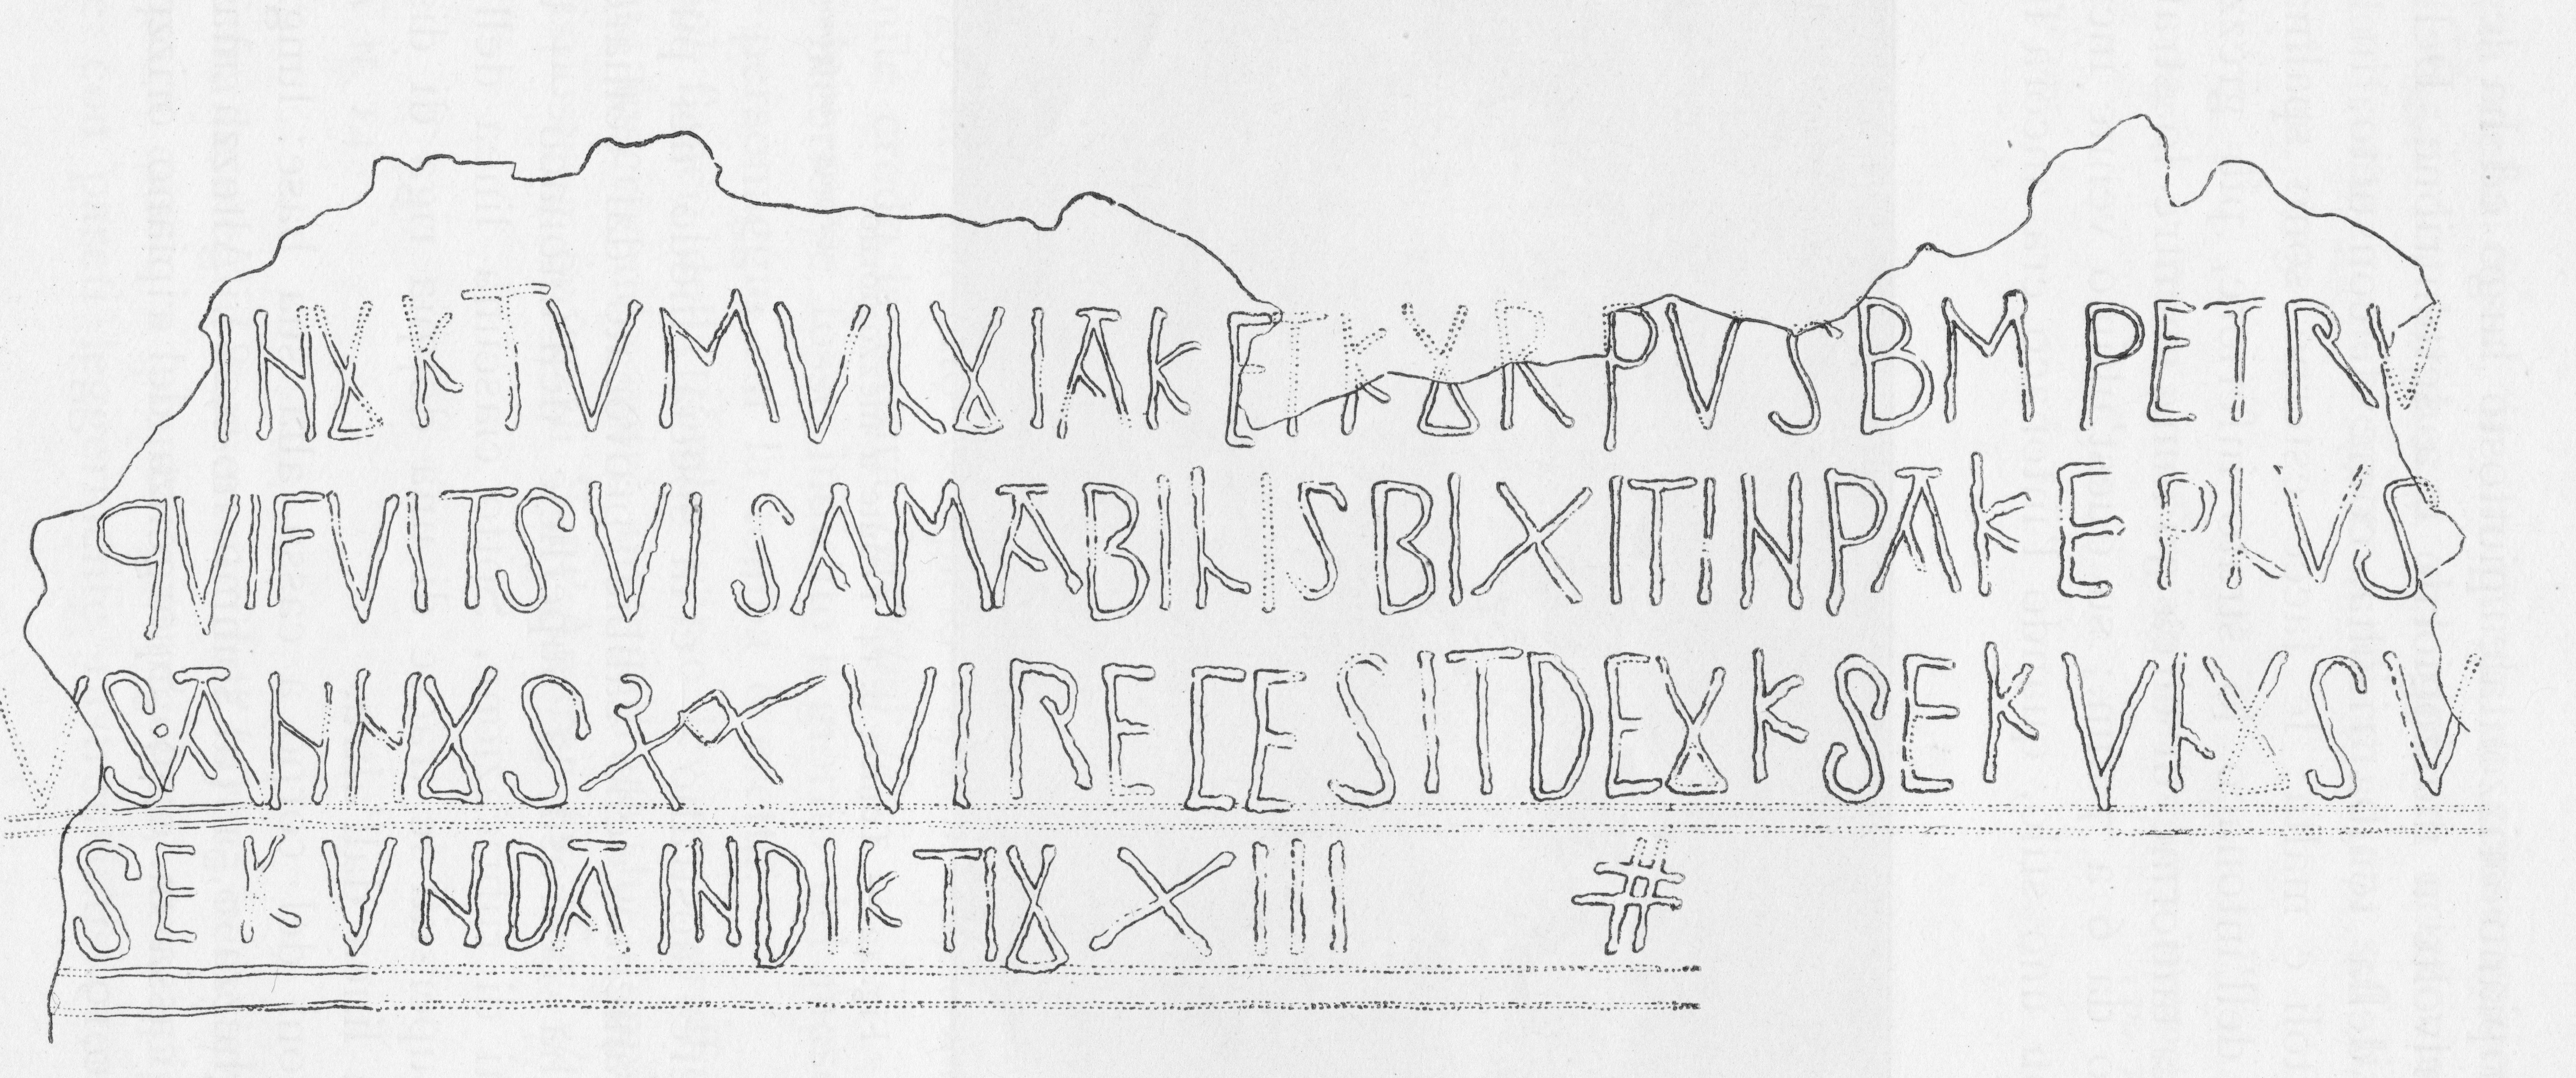 IN OK TVMVLO IAKET KORPVS BM PETRV
QVI FVIT SVIS AMABILIS BIXIT IN PAKE PLVS
VS ANNOS VI RECESIT DE OK SEKVLO SV
SEKVNDA INDIKTIO XIII #